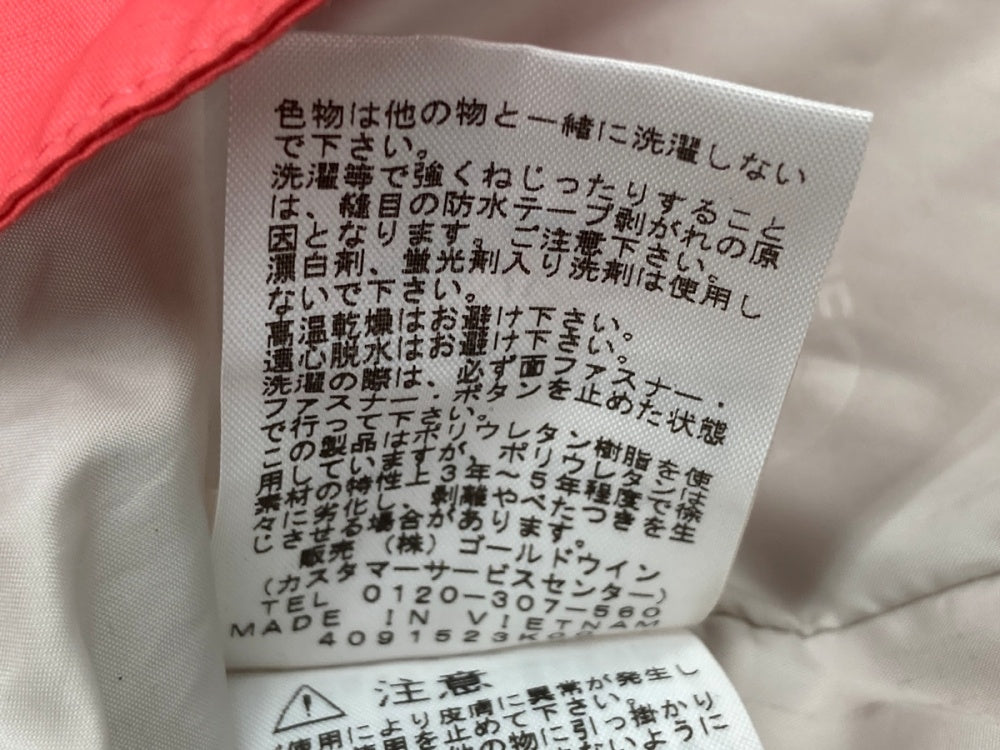 色物は他の物と一緒に洗濯しない
で下さい。
洗濯等で強くねじったりすること
は、縫目の防水テープ剥がれの原
因となります。ご注意下さい。
漂白剤、蛍光剤入り洗剤は使用し
ないで下さい。
高温乾燥はお避け下さい。
遠心脱水はお避け下さい。
洗濯の際は、必ず面ファスナー・
ファスナー・ボタンを止めた状態
で行って下さい。
この製品はポリウレタン樹脂を使
用していますが、ポリウレタンは
素材の特性上3年～5年程度で徐
々に劣化し、剥離やべたつきを生
じさせる場合があります。
販売 (株) ゴールドウイン
(カスタマーサービスセンター)
TEL 0120-307-560
MADE IN VIETNAM
4091523K
注意
使用により皮膚に異常が発生し
使用を止めて下さい。
他の物に引っ掛かり
ないように